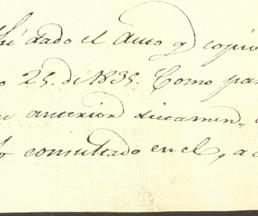 dado el Auto q copio
25. de 1835. Como par
anterior dictamen,
consultado en el, a